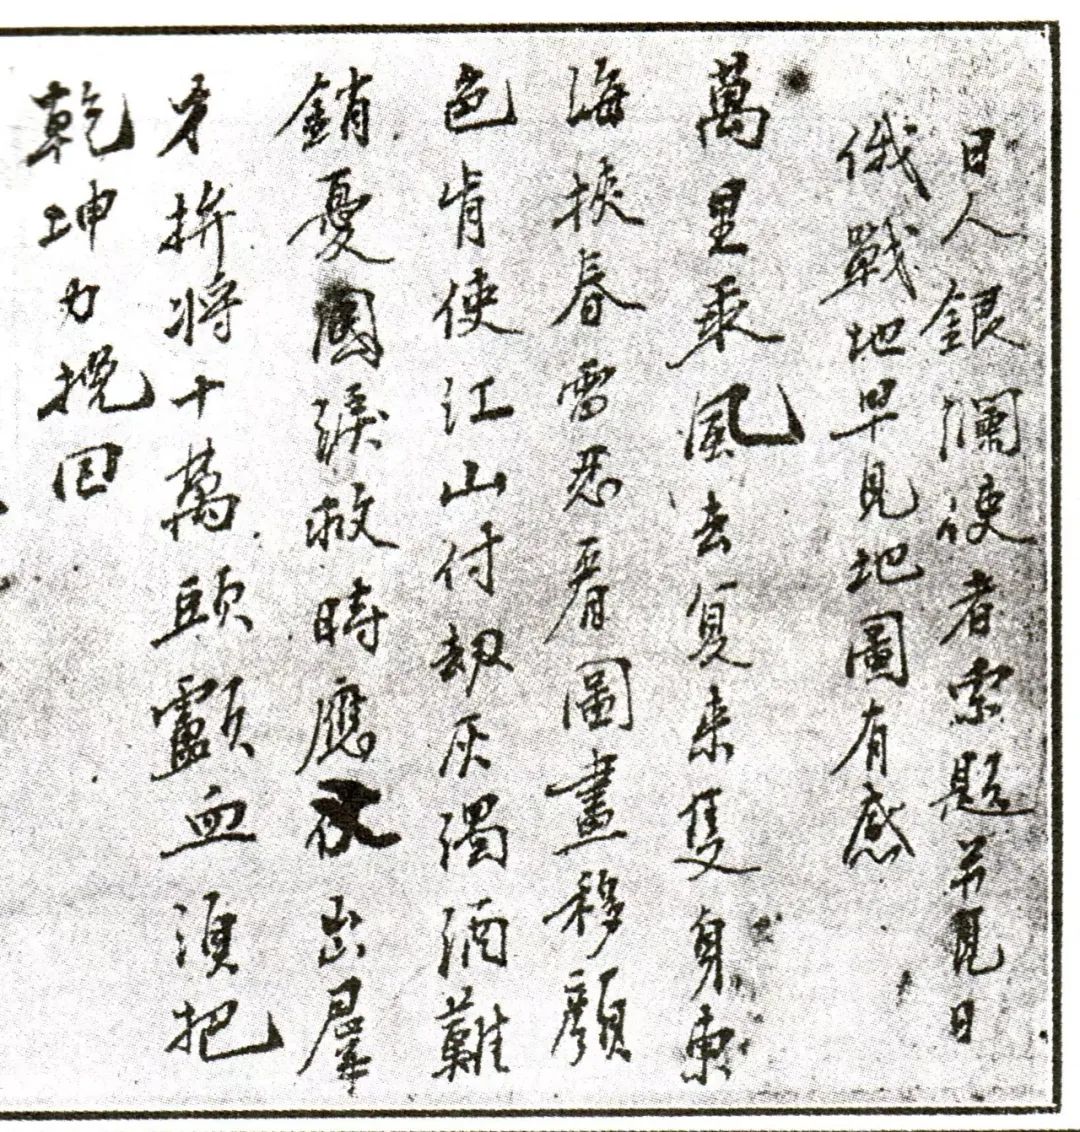 日人銀瀾使者索題并見日
俄戰地早見地圖有感
萬里乘風去复来隻身東
海挾春雷忍看圖畫移顏
色肯使江山付劫灰濁酒難
銷憂國淚救時應仗出羣
才拚將十萬頭顱血須把
乾坤力挽回